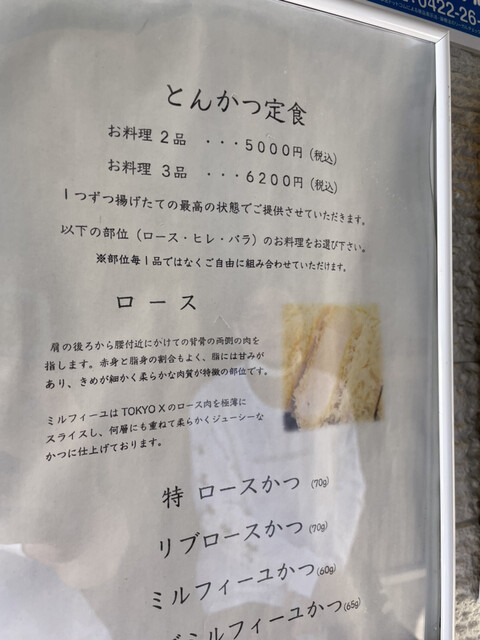 0422-26-
とんかつ定食
お料理 2品 ・・・5000円(税込)
お料理 3品 ・・・6200円(税込)
1つずつ揚げたての最高の状態でご提供させていただきます。
以下の部位(ロース・ヒレ・バラ)のお料理をお選び下さい。
※部位毎1品ではなくご自由に組み合わせていただけます。
ロース
肩の後ろから腰付近にかけての背骨の両側の肉を
指します。赤身と脂身の割合もよく、脂には甘みが
あり、きめが細かく柔らかな肉質が特徴の部位です。
ミルフィーユはTOKYO Xのロース肉を極薄に
スライスし、何層にも重ねて柔らかくジューシーな
かつに仕上げております。
特 ロースかつ (70g)
リブロースかつ (70g)
ミルフィーユかつ(60g)
ミルフィーユかつ(65g)